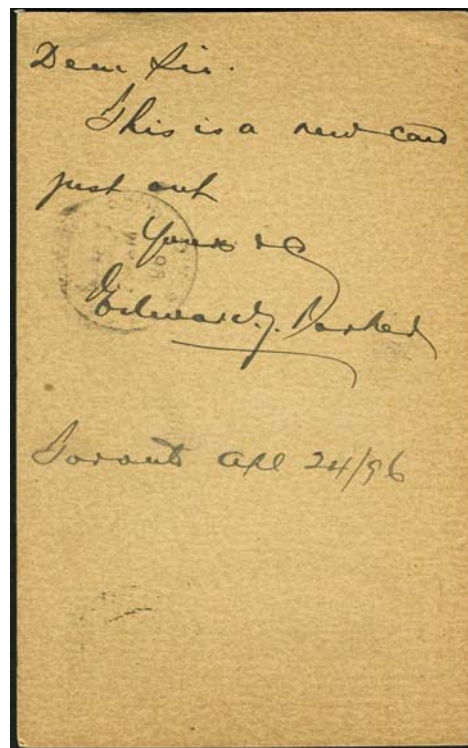 Dear Sir.
This is a new card
just out
Yours &c
Edward J. Parker
Toronto Apl 24/96